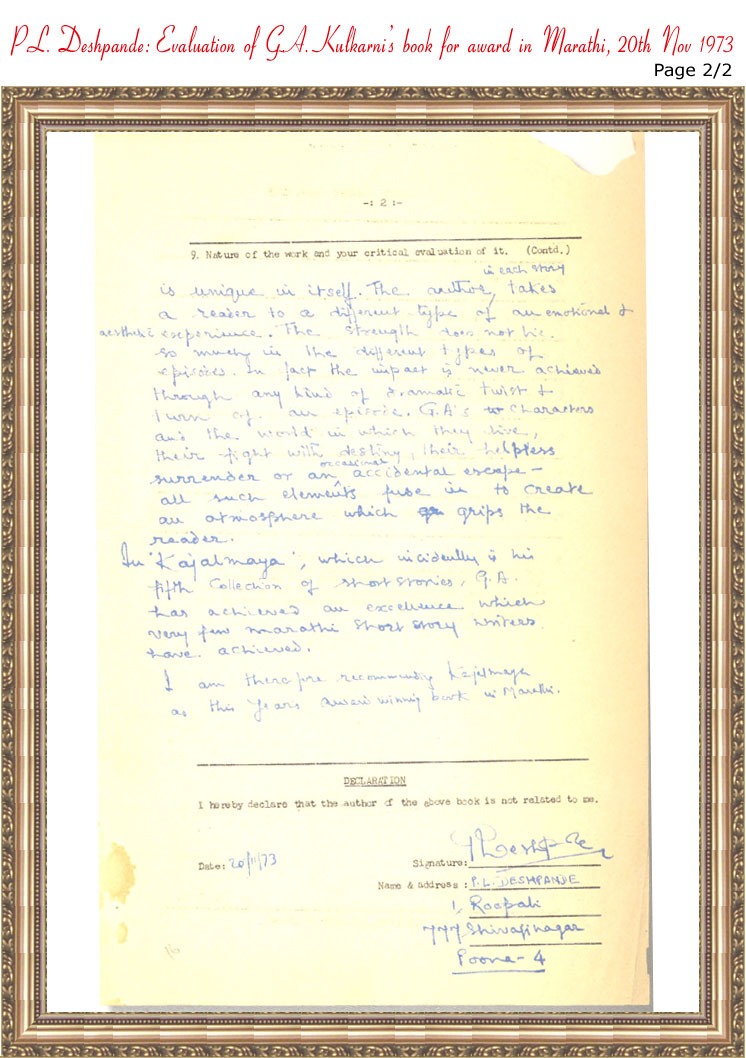 P.L. Deshpande: Evaluation of G.A. Kulkarni's book for award in Marathi, 20th Nov 1973
Page 2/2
-: 2 :-
9. Nature of the work and your critical evaluation of it. (Contd.)
in each story
is unique in itself. The author, takes
a reader to a different type of an emotional &
aesthetic experience. The strength does not lie
so much in the different types of
episodes. In fact the impact is never achieved
through any kind of dramatic twist &
turn of an episode. G.A's characters
and the world in which they live,
their fight with destiny, their helpless
occasional
surrender or an accidental escape –
all such elements fuse in to create
an atmosphere which grips the
reader.
In 'Kajalmaya', which incidently is his
fifth Collection of short stories, G.A.
has achieved an excellence which
very few marathi short story writers
have achieved.
I am therefore recommending Kajalmaya
as this Years award winning book in Marathi.
DECLARATION
I hereby declare that the author of the above book is not related to me.
Date: 20/11/73
Signature: PLDeshpande
Name & address : P.L. DESHPANDE
1, Roopali
777 Shivajinagar
Poona - 4